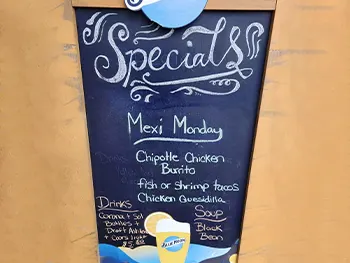 Specials
Mexi Monday
Chipotle Chicken
Burrito
fish or Shrimp tacos
Chicken Quesidilla
Drinks
Corona + Sol
Bottles +
Draft
+ Coors Light
$5.00
Soup
Black
Bean
BLUE MOON